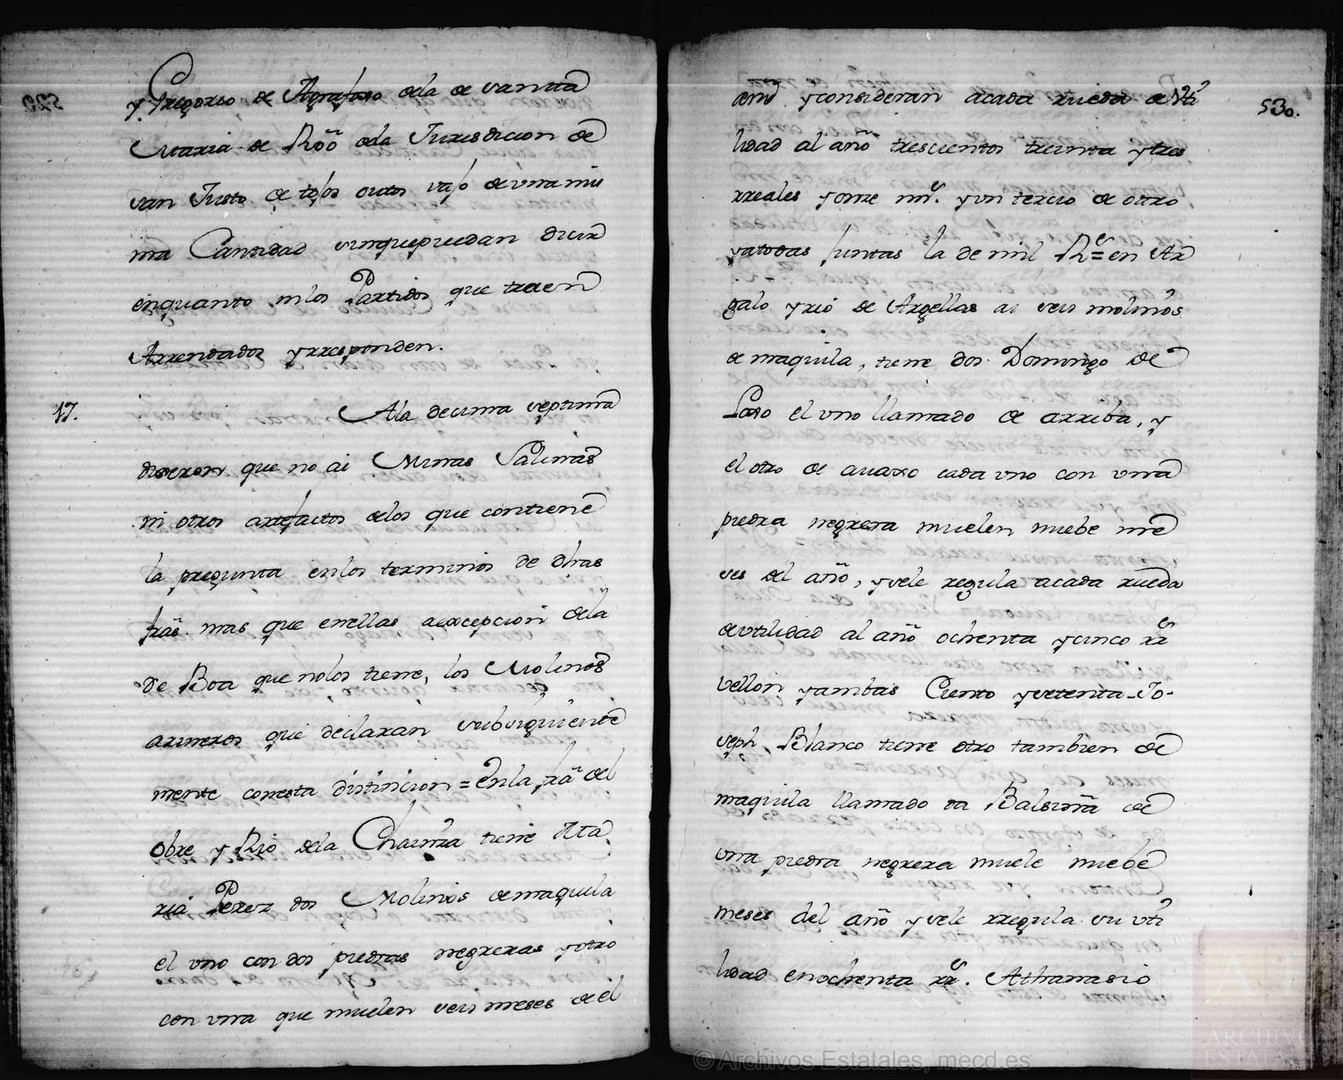 y Gregorio de Agrafoxo dela de santa
Maria de Röö dela Jurisdicion de
san Justo de todos ellos vajo de una mis
ma Cantidad sinque puedan dicir
enquanto nilos Partidos que traen
Arrendados y rresponden.
17. Ala decima septima
dixeron que no ai Minas Salinas
ni otros artefactos delos que contiene
la pregunta enlos terminos de dhas
frãs. mas que enellas aexcepcion dela
de Boa que nolos tiene, los Molinos
arineros que declaran subsiguiente
mente conesta distincion = Enla frã del
Obre y Rio dela Chainza tiene Ma
ria Perez dos Molinos demaquila
el uno con dos piedras negreras y otro
con una que muelen seis meses de el
530.
año y consideran acada rueda de Uti
lidad al año trescientos treinta y tres
rreales y onze mrs. y un tercio de otro
y atodas Juntas la de mil Rs = en Ar
galo y rio de Argellas ai seis molinos
de maquila, tiene dos Domingo de
Lojo el uno llamado de arriba, y
el otro de avaxo cada uno con una
piedra negrera muelen nuebe me
ses del año, y sele regula acada rueda
de utilidad al año ochenta y cinco rrs
vellon y ambas Ciento y setenta Jo-
seph Blanco tiene otro tambien de
maquila llamado da Balsiña de
una piedra negrera muele nuebe
meses del año y sele rregula su uti
lidad enochenta rrs. Athanasio
© Archivos Estatales, mecd.es
ARCHIVOS
ESTATALES